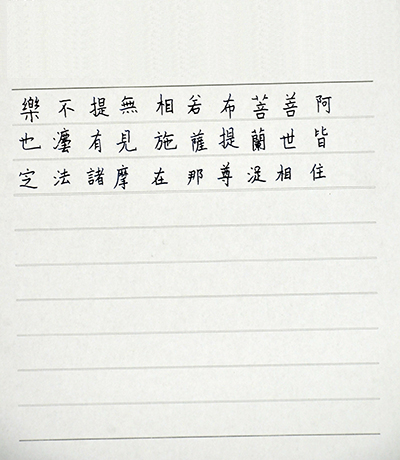 樂不提無相若布菩善阿
也有見施薩提蘭世皆
定法諸摩在那尊涅相住